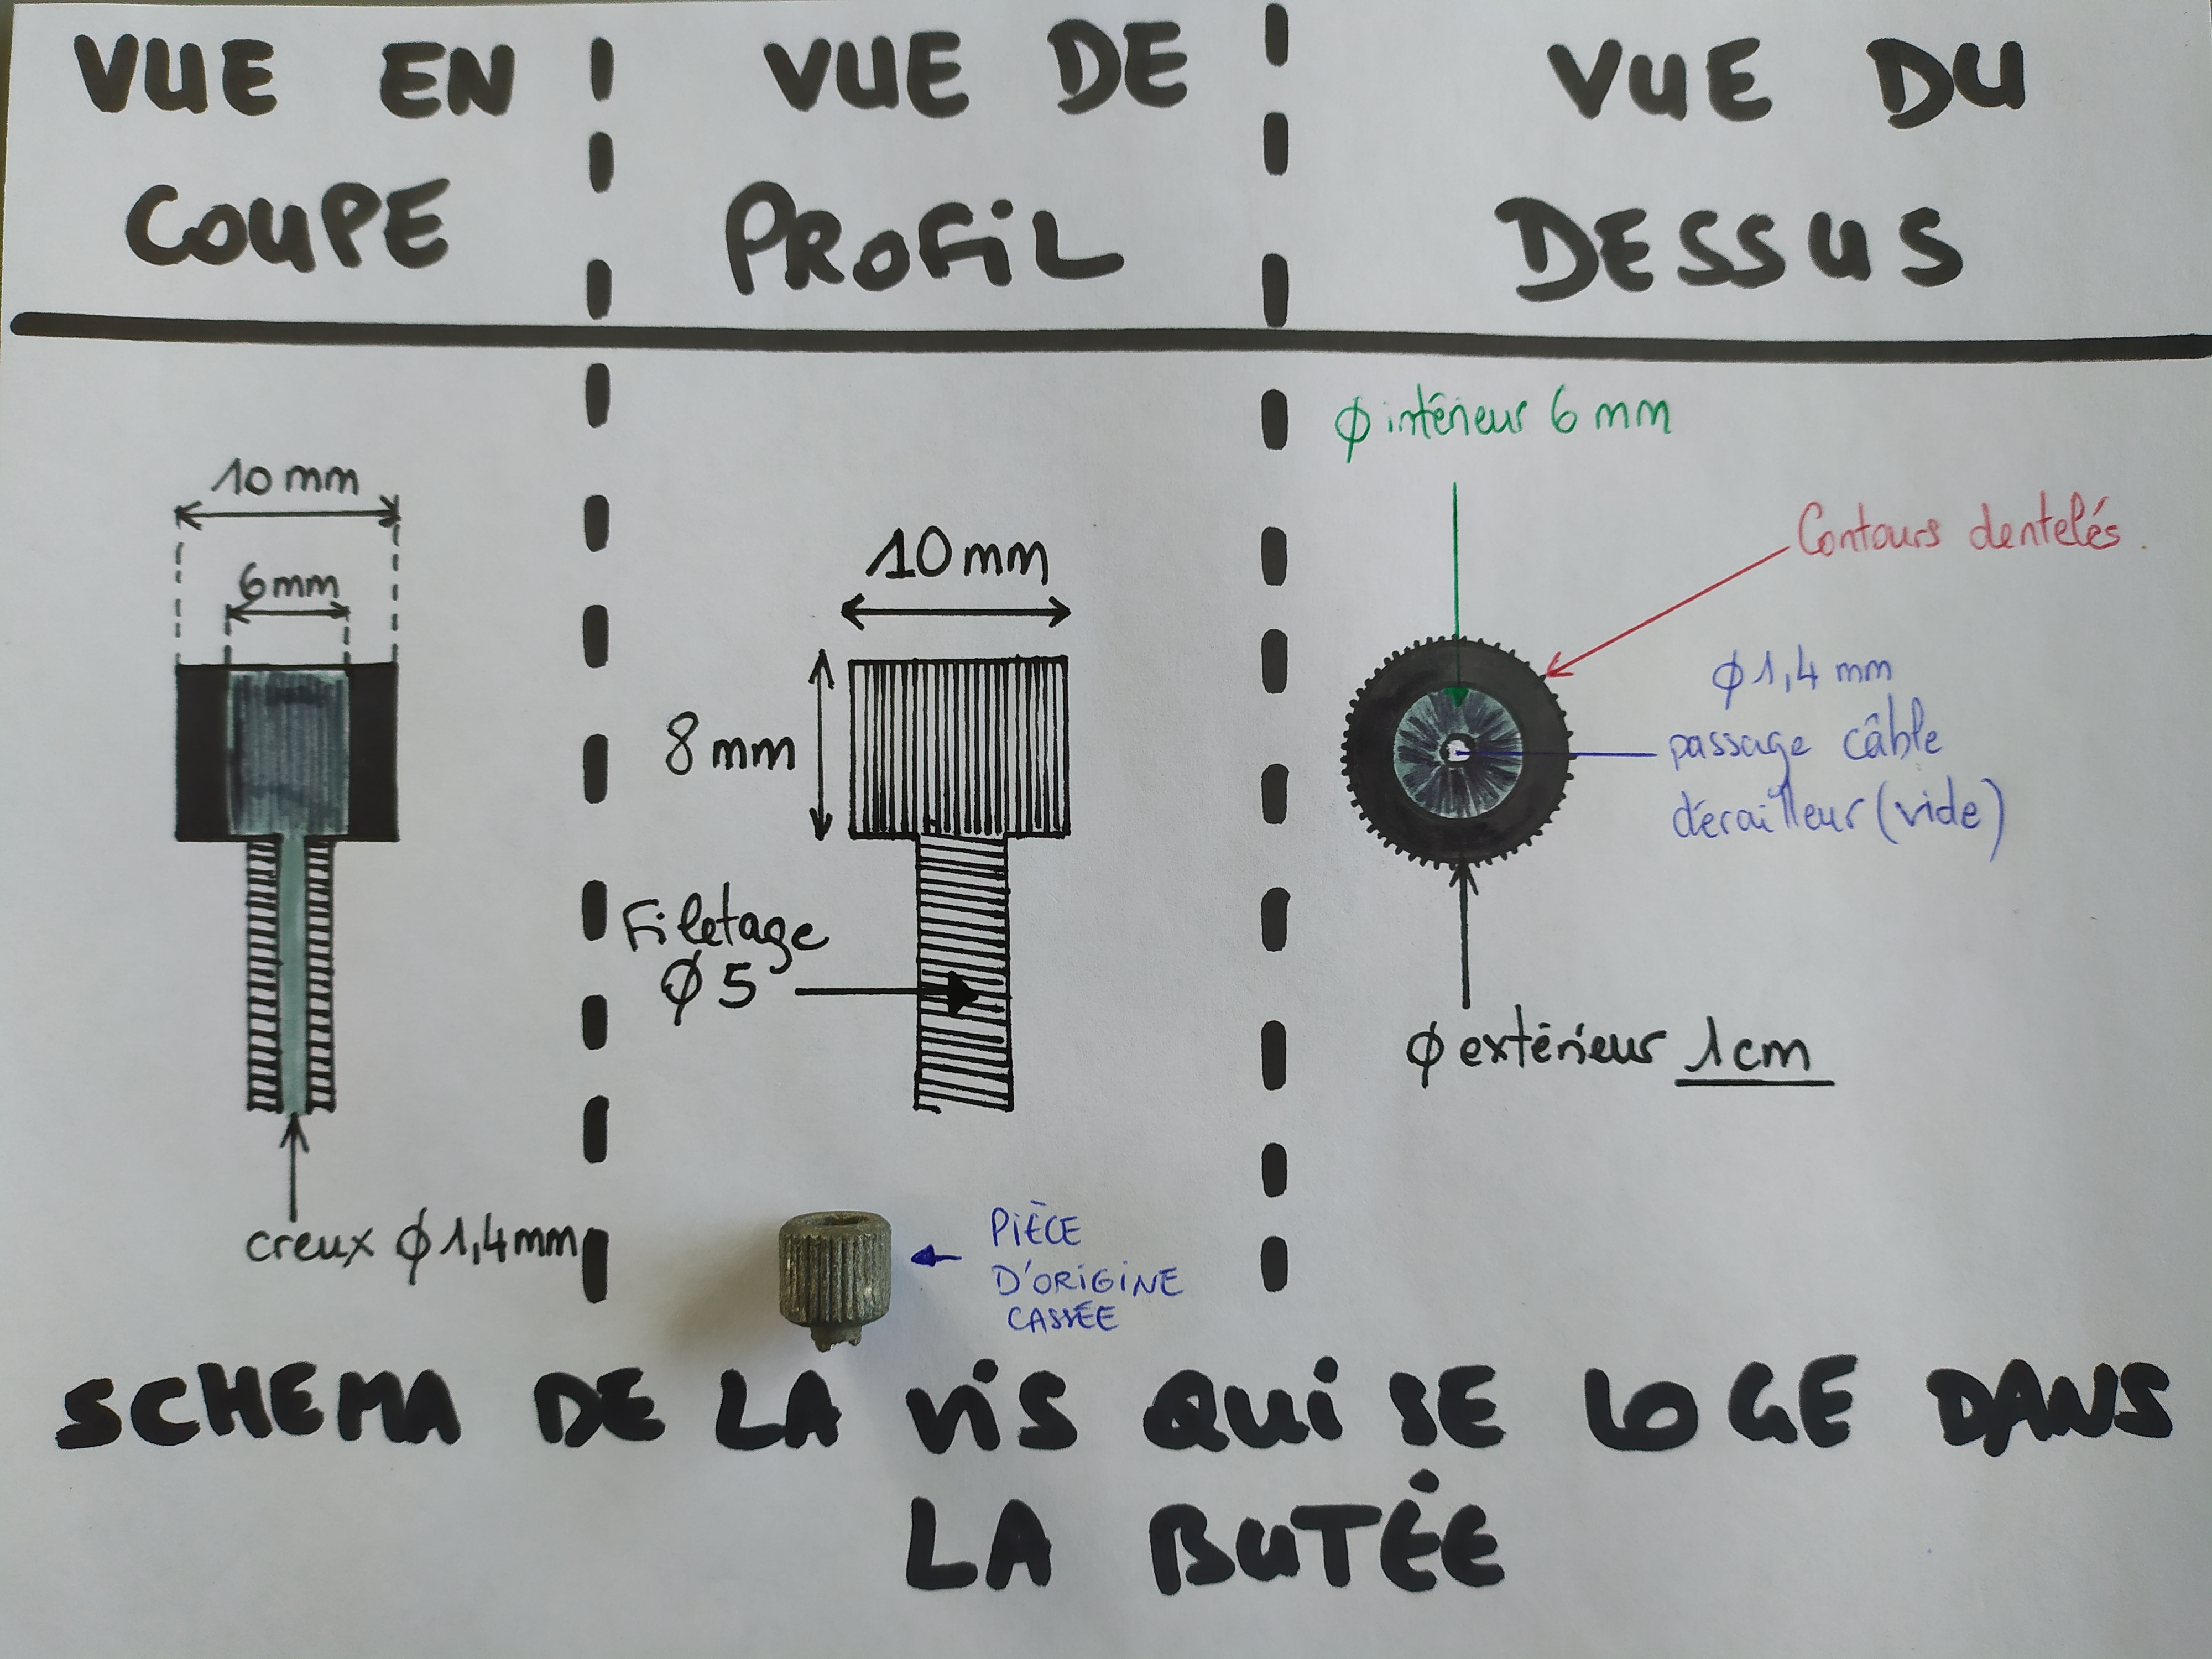 VUE EN
COUPE
VUE DE
PROFiL
VUE DU
DESSUS
10 mm
6 mm
creux ϕ 1,4 mm
10 mm
8 mm
Filetage
ϕ 5
PIÈCE
D'ORiGiNE
CASSÉE
ϕ intérieur 6 mm
Contours dentelés.
ϕ 1,4 mm
passage câble
dérailleur (vide)
ϕ extérieur 1 cm
SCHEMA DE LA ViS QUi SE LOGE DANS
LA BUTÉE